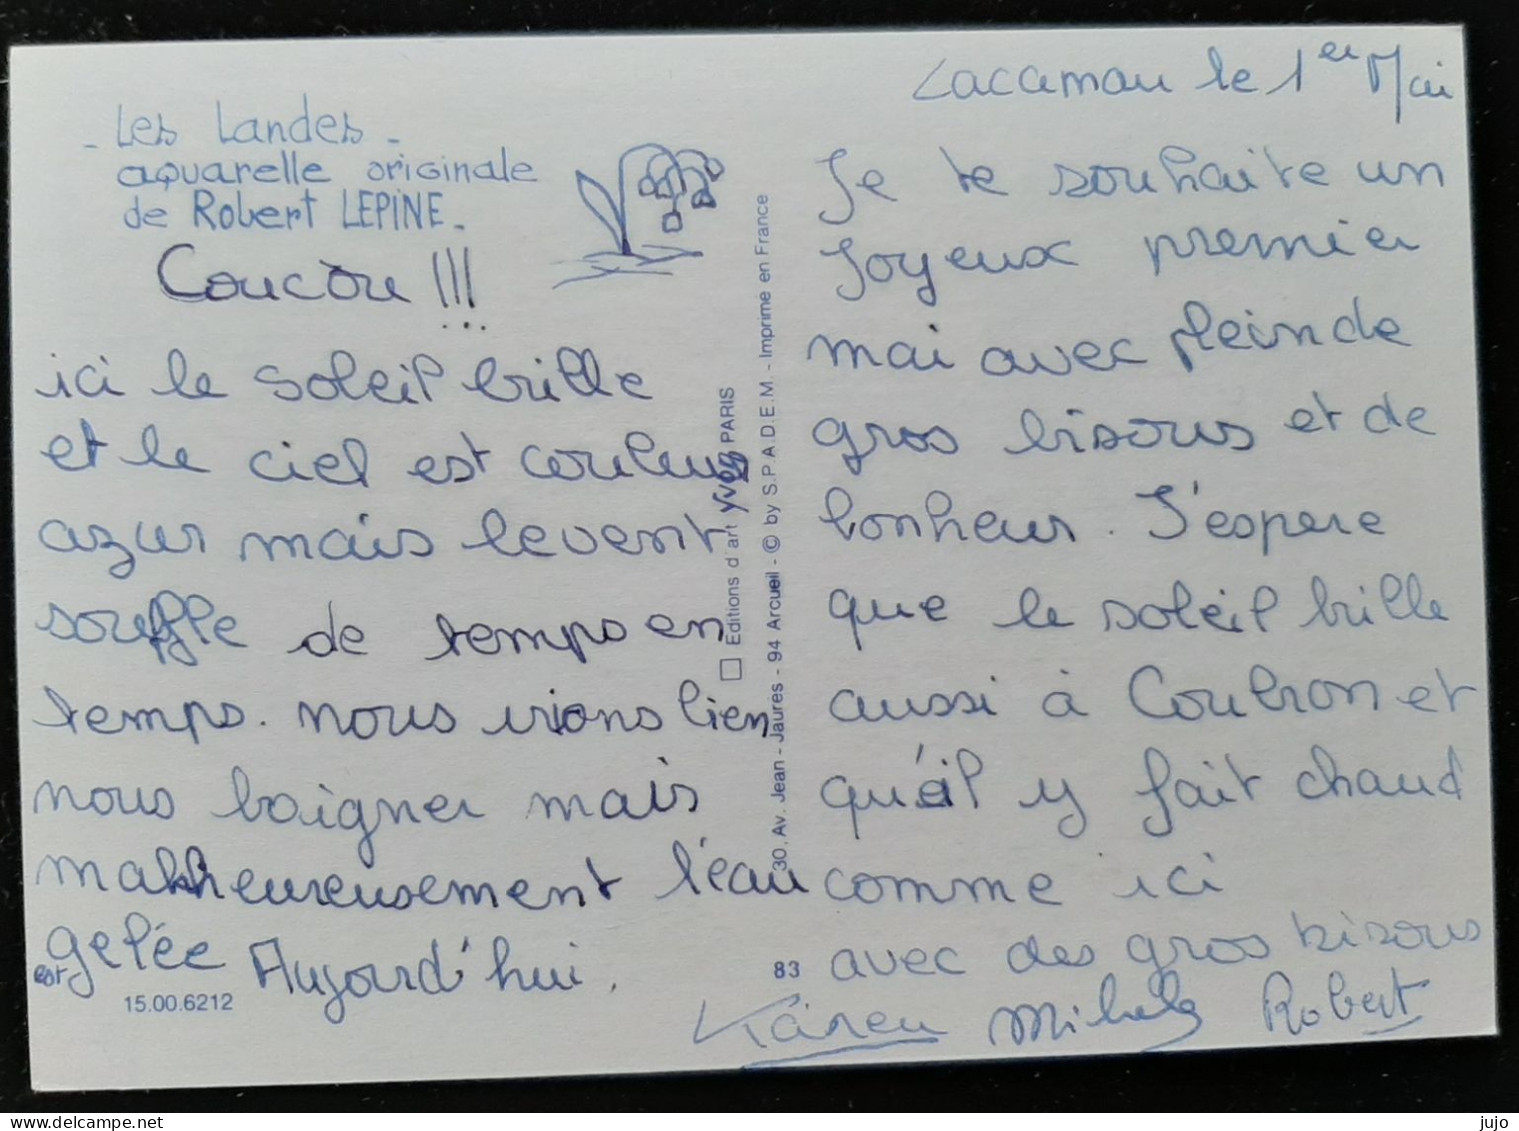 - Les Landes -
aquarelle originale
de Robert LEPINE -
Coucou !!!
ici le soleil brille
et le ciel est couleurs
azur mais le vent
souffle de temps en
temps. nous irions bien
nous baigner mais
malheureusement l'eau
est gelée Aujourd'hui.
15.00.6212
Editions d'art YVON PARIS
30, Av. Jean - Jaurès - 94 Arcueil - © by S.P.A.D.E.M. - Imprimé en France
83
Lacanau le 1er Mai
Je te souhaite un
Joyeux premier
mai avec plein de
gros bisous et de
bonheur. J'espere
que le soleil brille
aussi à Coubron et
qu'il y fait chaud
comme ici
avec des gros bisous
Karen Michele Robert
www.delcampe.net
jujo